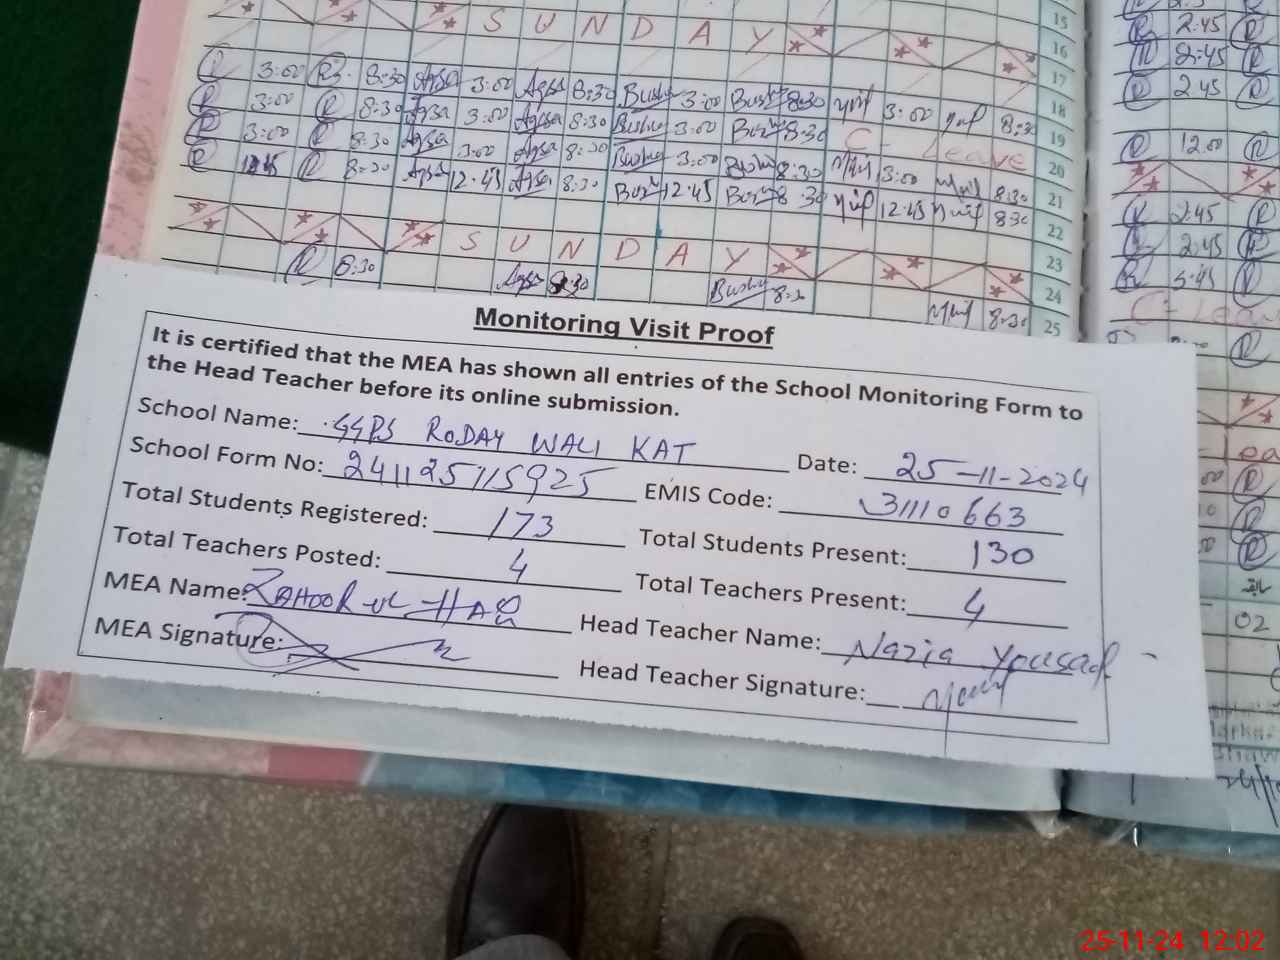 15
S U N D A Y
16
17
R 3:00 R 8:30 Aqsa 3:00 Aqsa 8:30 Bushy 3:00 Bushy 8:30 3:00 8:30
18
R 3:00 R 8:30 Aqsa 3:00 Aqsa 8:30 Bushy 3:00 Bushy 8:30 C- Leave
19
R 3:00 R 8:30 Aqsa 3:00 Aqsa 8:30 Bushy 3:00 Bushy 8:30 3:00 8:30
20
R R 8:30 Aqsa 12:45 Aqsa 8:30 Bushy 12:45 Bushy 8:30 12:45 8:30
21
22
S U N D A Y
23
24
R 8:30 Aqsa 8:30 Bushy 8:30 8:30
25
2:45
2:45
2 45
12.00
2:45
2:45
C- Leav
02
Monitoring Visit Proof
It is certified that the MEA has shown all entries of the School Monitoring Form to
the Head Teacher before its online submission.
School Name: GGPS RODAY WALI KAT Date: 25-11-2024
School Form No: 241125115925 EMIS Code: 31110663
Total Students Registered: 173 Total Students Present: 130
Total Teachers Posted: 4 Total Teachers Present: 4
MEA Name: ZAHOOR UL HAQ Head Teacher Name: Nazia Yousaf
MEA Signature: Head Teacher Signature:
25-11-24 12:02